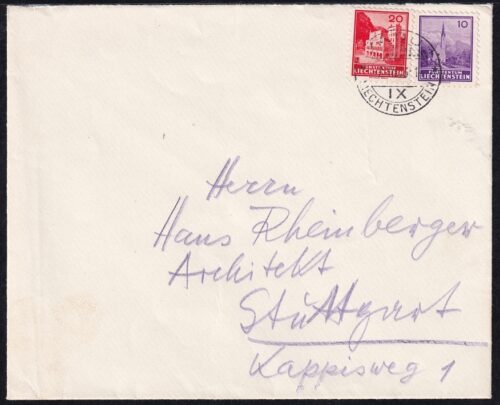 20
FÜRSTENTUM
LIECHTENSTEIN
10
FÜRSTENTUM
LIECHTENSTEIN
IX
LIECHTENSTEIN
Herrn
Hans Rheinberger
Architekt
Stuttgart
Kappisweg 1